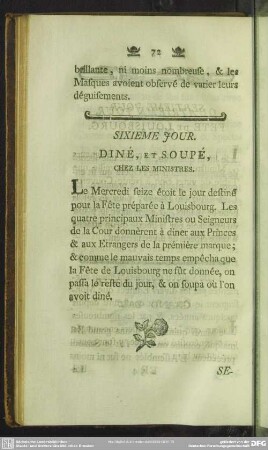 72
brillante, ni moins nombreuse, & les
Masques avoient observé de varier leurs
déguisements.
SIXIEME JOUR.
DINÉ, ET SOUPÉ,
CHEZ LES MINISTRES.
Le Mercredi seize étoit le jour destiné
pour la Fête préparée à Louisbourg. Les
quatre principaux Ministres ou Seigneurs
de la Cour donnèrent à diner aux Princes
& aux Etrangers de la prémière marque;
& comme le mauvais temps empêcha que
la Fête de Louisbourg ne fût donnée, on
passa le reste du jour, & on soupa où l'on
avoit diné.
SE-